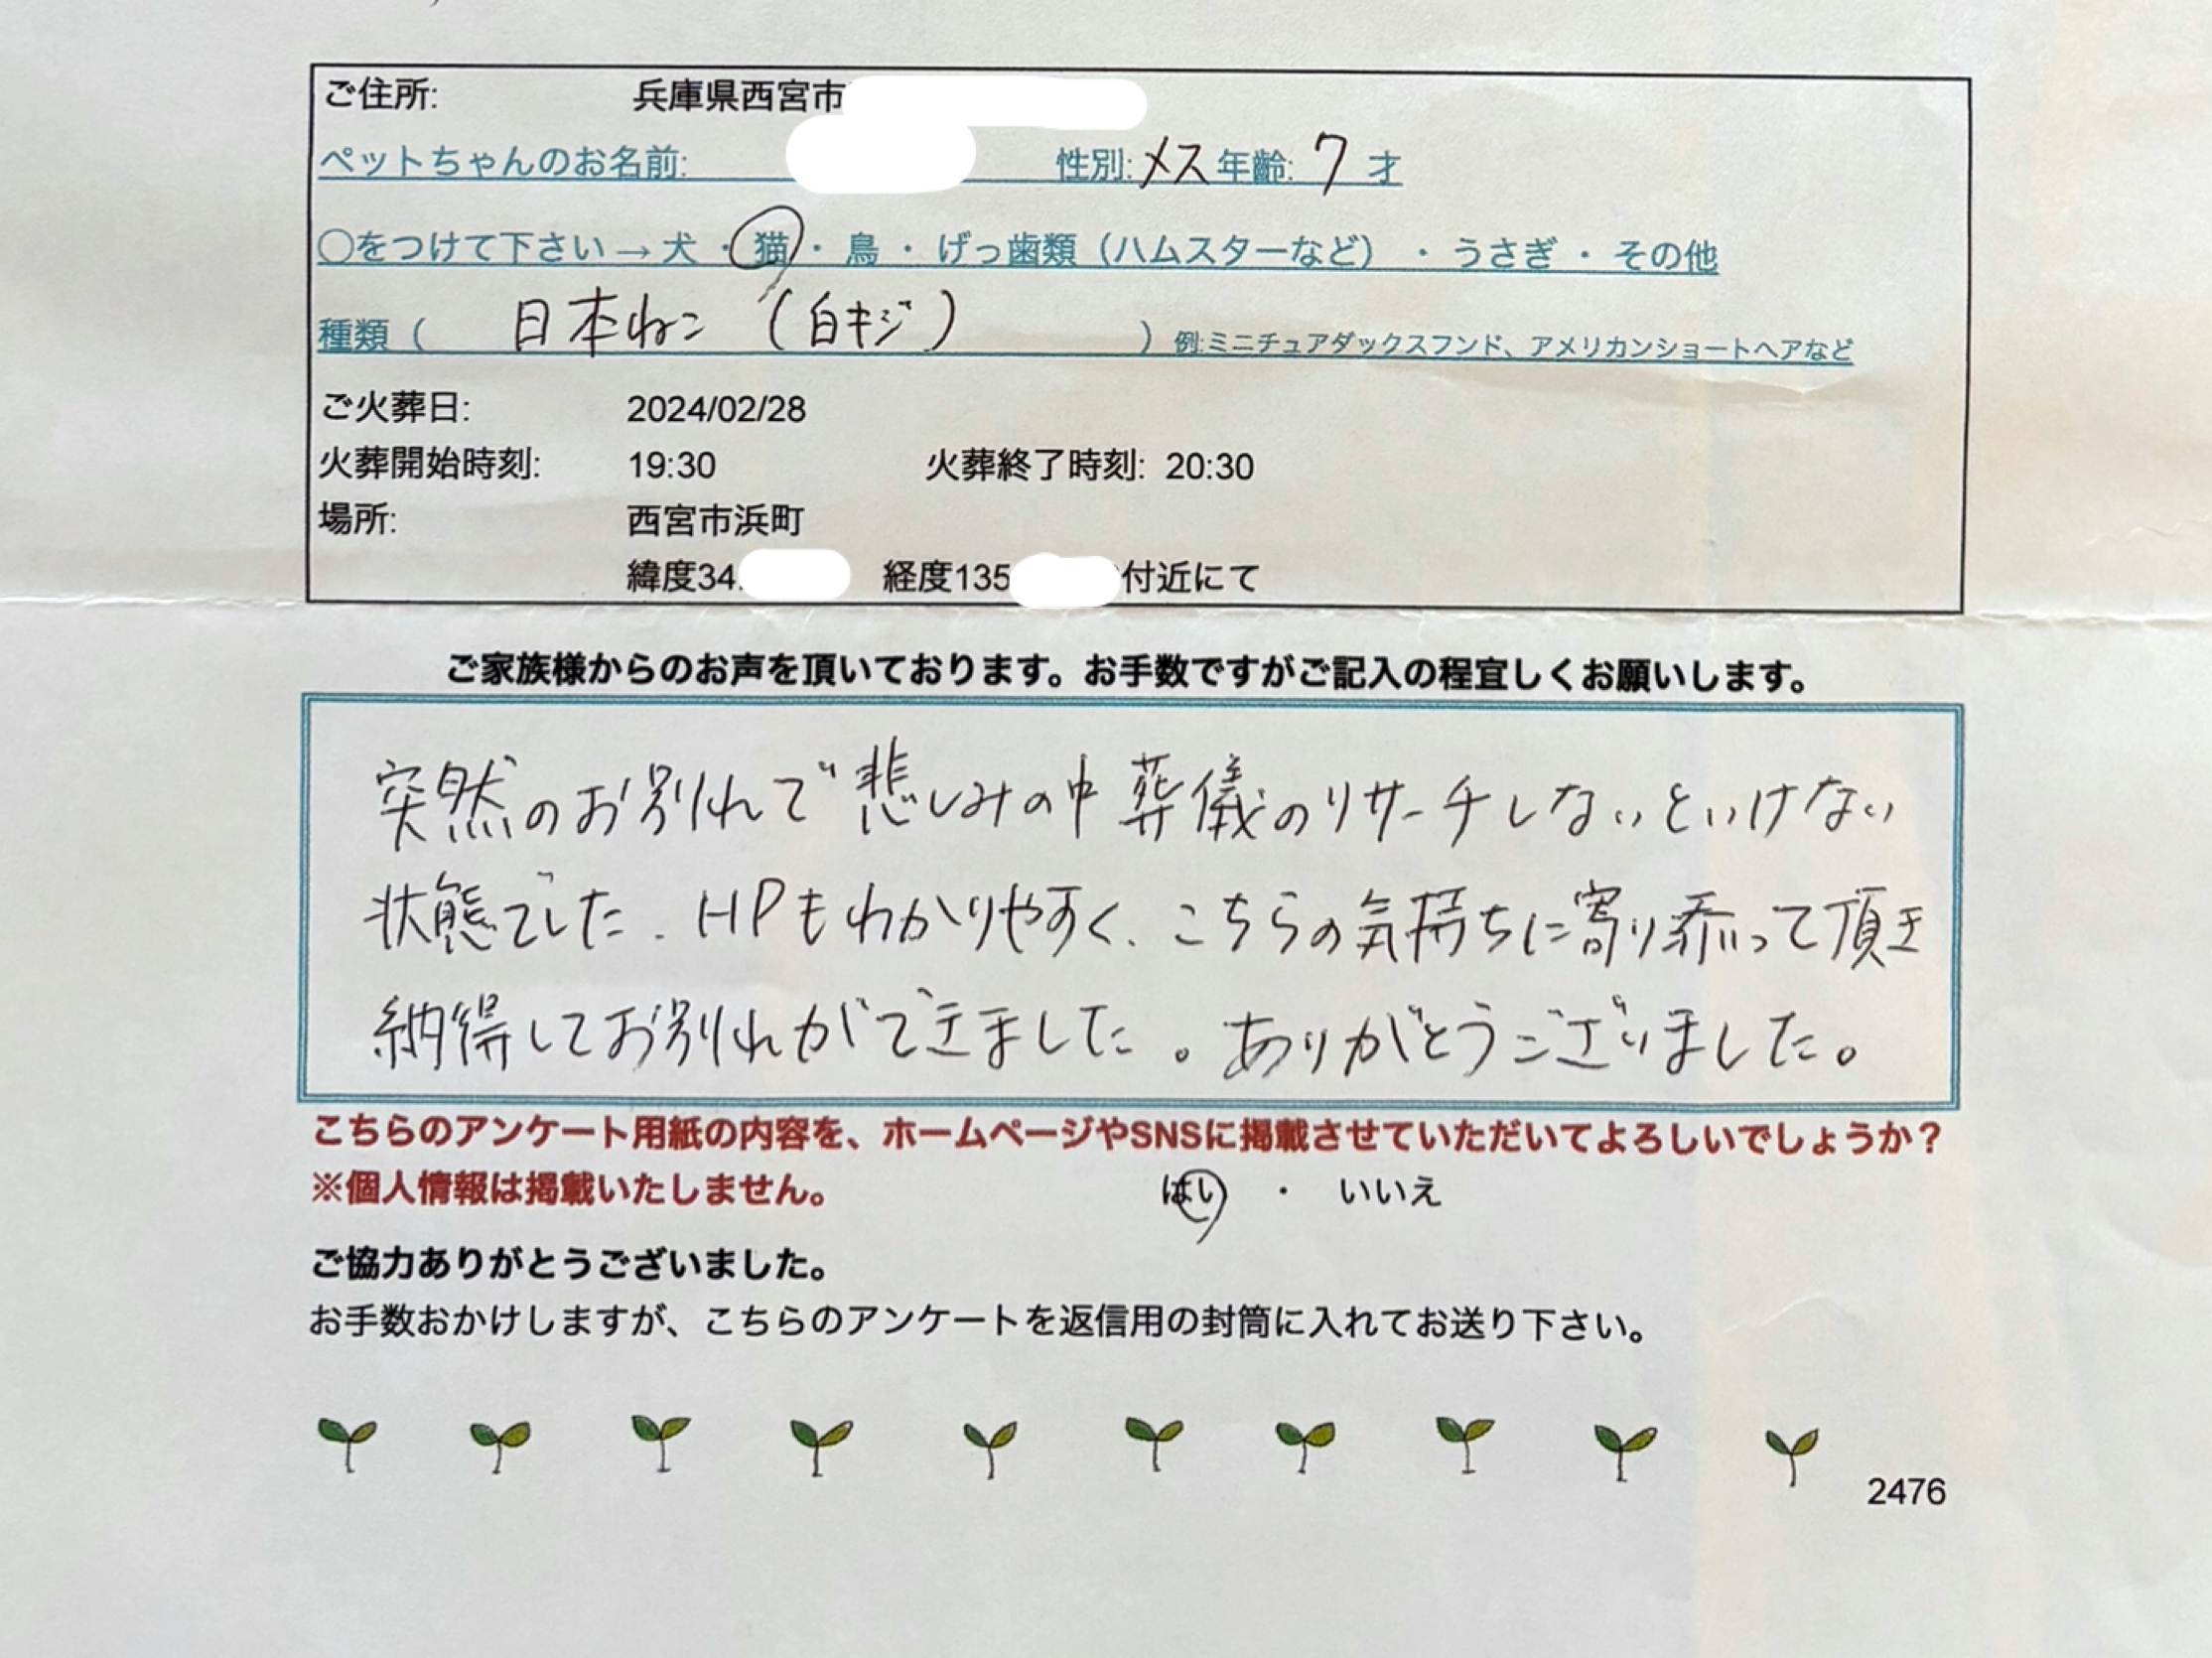 ご住所: 兵庫県西宮市
ペットちゃんのお名前: 性別: メス 年齢: 7 才
○をつけて下さい→犬・猫・鳥・げっ歯類（ハムスターなど）・うさぎ・その他
種類（ 日本ねこ （白キジ） ）例:ミニチュアダックスフンド、アメリカンショートヘアなど
ご火葬日: 2024/02/28
火葬開始時刻: 19:30 火葬終了時刻: 20:30
場所: 西宮市浜町
緯度34. 経度135 付近にて
ご家族様からのお声を頂いております。お手数ですがご記入の程宜しくお願いします。
突然のお別れで悲しみの中葬儀のリサーチしないといけない
状態でした。HPもわかりやすく、こちらの気持ちに寄り添って頂き
納得してお別れができました。ありがとうございました。
こちらのアンケート用紙の内容を、ホームページやSNSに掲載させていただいてよろしいでしょうか？
※個人情報は掲載いたしません。 はい ・ いいえ
ご協力ありがとうございました。
お手数おかけしますが、こちらのアンケートを返信用の封筒に入れてお送り下さい。
2476